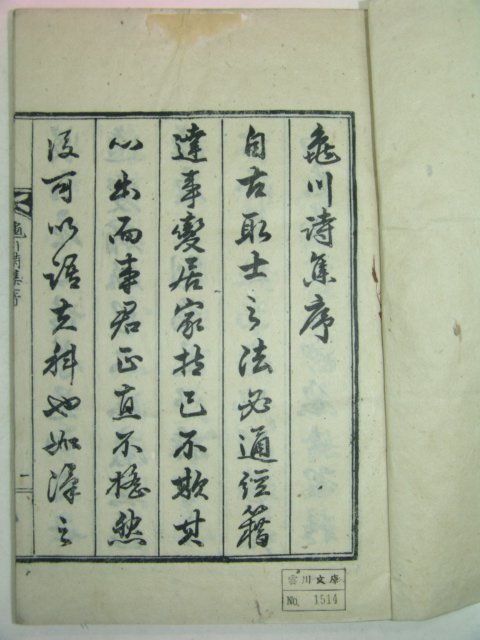 龜川詩集序
自古取士之法必通經籍
達事變居家持己不欺其
心出而事君正直不撓然
後可以語其科也如漢之
龜川詩集序
一
雲川文庫
No. 1514